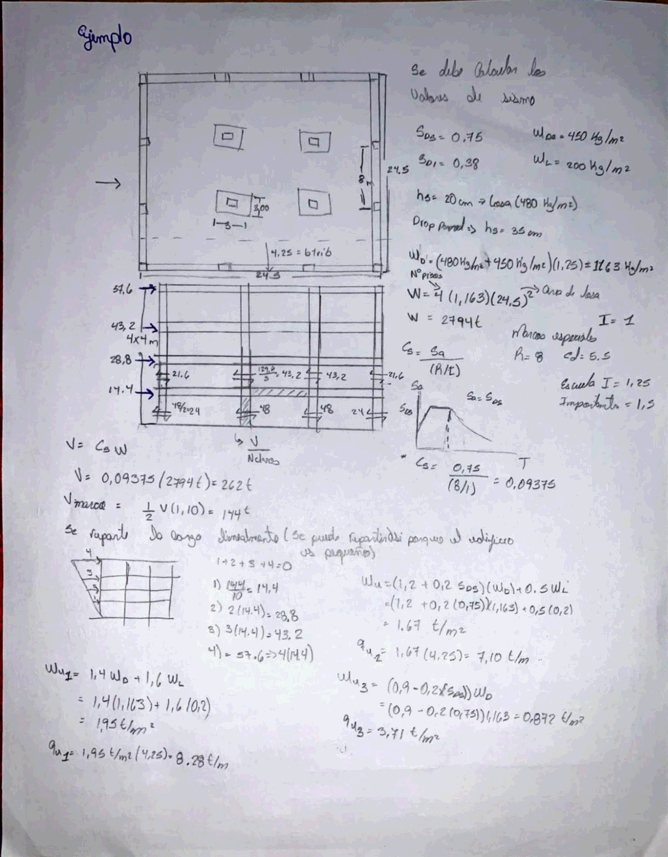 Ejemplo
Se debe calcular los
valores de sismo
S_DS = 0,75
W_DS = 450 Kg/m²
S_D1 = 0,38
W_L = 200 Kg/m²
hs = 20 cm → Losa (480 Kg/m²)
⇒ hs = 35 cm
W_D = (480 Kg/m² + 450 Kg/m²)(1,25) = 1163 Kg/m²
Nº pisos
W = 4 (1,163)(24,5)² → Area de losa
W = 2794 t
I = 1
Marcos especiales
R = 8 Cd = 5.5
Escuela I = 1,25
Importante = 1,5
Cs = Sa / (R/I)
Sa
S_DS
Sa = S_DS
T
Cs = 0,75 / (8/1) = 0,09375
24,5
8
3,00
3
4.25 = b trib
24.5
57.6
43,2
4x4m
28,8
21.6
43,2
43,2
21,6
14.4
48
48
24
V
V = Cs W
V = 0,09375 (2794 t) = 262 t
V marco = 1/2 V (1,10) = 144 t
Se reparte la carga linealmente (Se puede repartir así porque el edificio
es pequeño)
4
3
1+2+3+4=0
1) 144/10 = 14,4
2) 2(14.4) = 28,8
3) 3(14.4) = 43,2
4) = 57.6 → 4(14.4)
Wu = (1,2 + 0,2 S_DS)(W_D) + 0.5 W_L
= (1,2 + 0,2 (0,75))(1,163) + 0,5 (0,2)
= 1.67 t/m²
qu₂ = 1,67 (4,25) = 7,10 t/m
Wu₁ = 1,4 W_D + 1,6 W_L
= 1,4 (1,163) + 1,6 (0,2)
= 1,95 t/m²
qu₁ = 1,95 t/m² (4,25) = 8.28 t/m
Wu₃ = (0,9 - 0,2(S_DS)) W_D
= (0,9 - 0,2 (0,75)) 1,163 = 0,872 t/m²
qu₃ = 3,71 t/m²